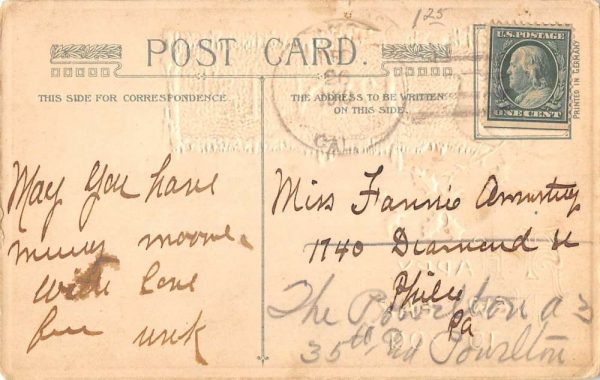 1 25
POST CARD.
THIS SIDE FOR CORRESPONDENCE
THE ADDRESS TO BE WRITTEN
ON THIS SIDE
U.S. POSTAGE
ONE CENT
PRINTED IN GERMANY
CAL
May You have
many moore
with love
Miss Fannie
1740 Diamond st
Phila
Pa
The
35th